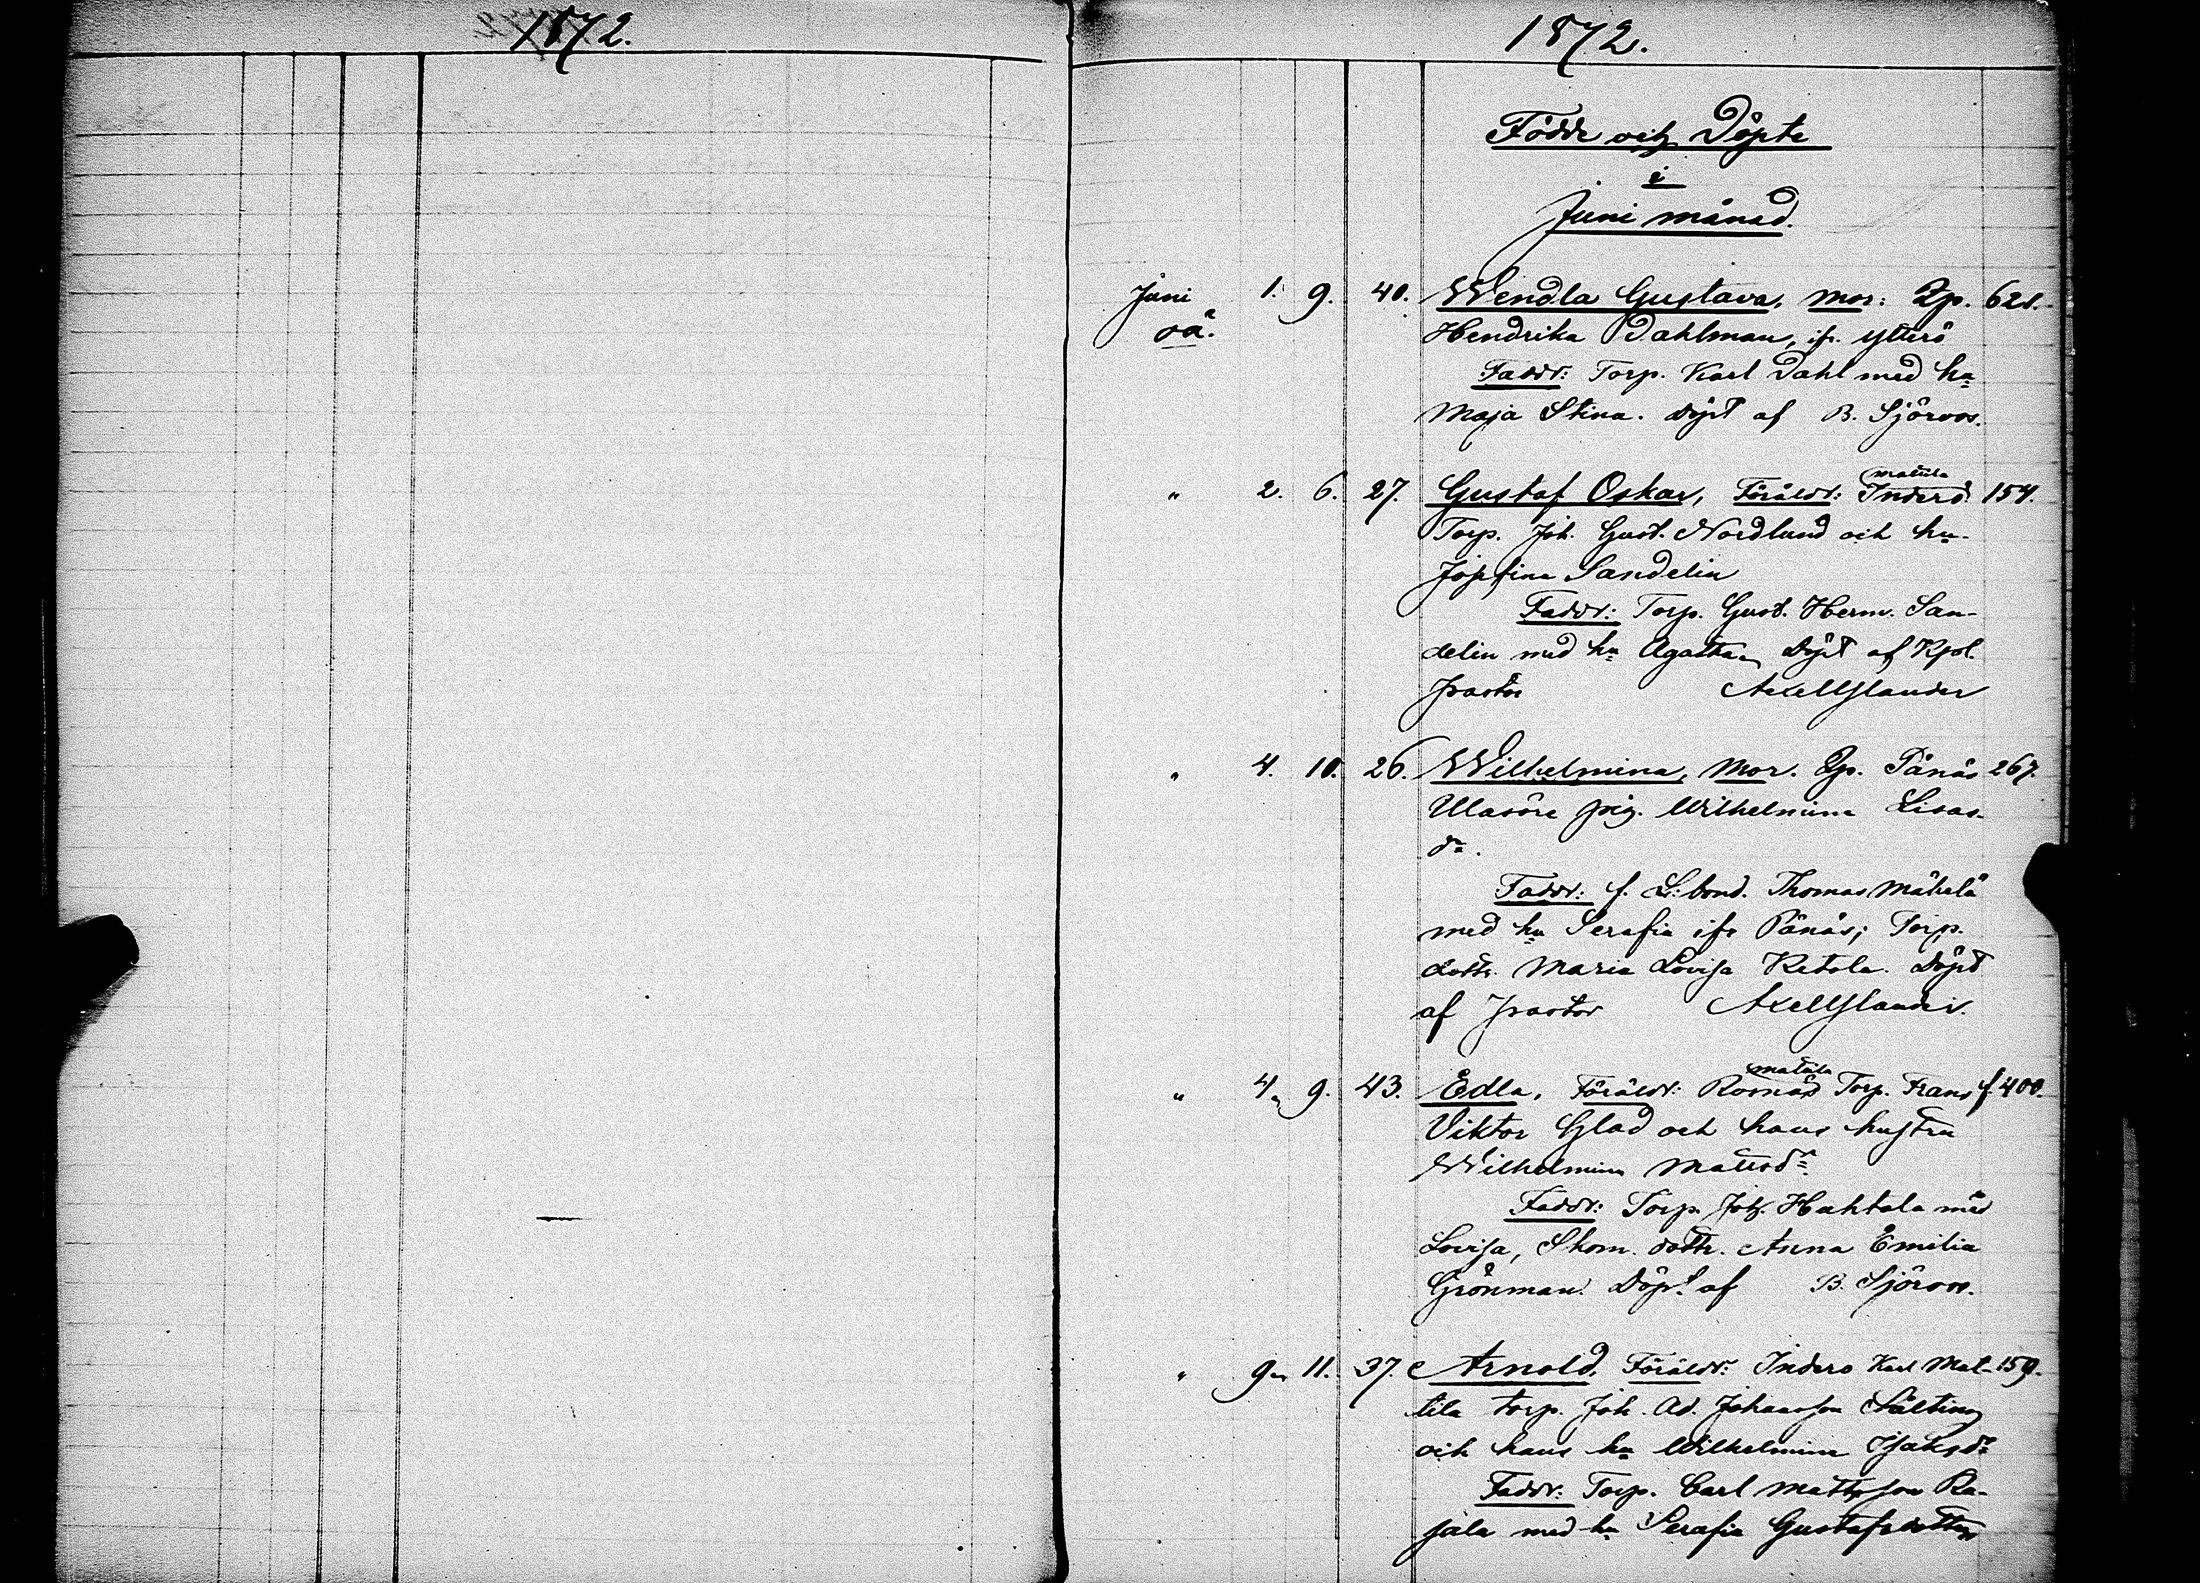 1872.
1872.
Födde och Döpte
i
Juni månad.
Juni 1. 9. 40. Wendla Gustava, mor: Qp. 628.
oä. Hendrika Dahlman, ifr. Ytterö
Faddr: Torp. Karl Dahl med hu
Maja Stina. Döpt af B. Sjöroos.
" 2. 6. 27. Gustaf Oskar, Föräldr: Inderö Mattila 154.
Torp. Joh. Gust. Nordlund och hu.
Josefina Sandelin
Faddr: Torp. Gust. Herm. San-
delin med hu Agatha, Döpt af Kpl.
pastor Axell Glander
" 4. 10. 26. Wilhelmina, Mor. Qp. Pånäs 267.
Ulasöre pig. Wilhelmina Lisas-
dr.
Faddr: f. L:bond. Thomas Mäkelä
med hu Serafia ifr Pånäs; Torp.
dottr. Maria Lovisa Ketola. Döpt
af pastor Axell Glander.
" 4. 9. 43. Edla, Föräldr: Rosnäs Mattila Torp. Frans f. 400.
Viktor Glad och hans hustru
Wilhelmina Mattsdr
Faddr: Torp. Joh. Huhtala med
Lovisa, Skom. dottr. Anna Emilia
Grönman. Döpt af B. Sjöroos.
" 9. 11. 37. Arnold, Föräldr: Inderö Karl Mat- 159.
tila torp. Joh. Ad. Johansson Sälting
och hans hu Wilhelmina Isaksdr
Faddr: Torp. Carl Mattsson Ra-
jala med hu Serafia Gustafsdotter